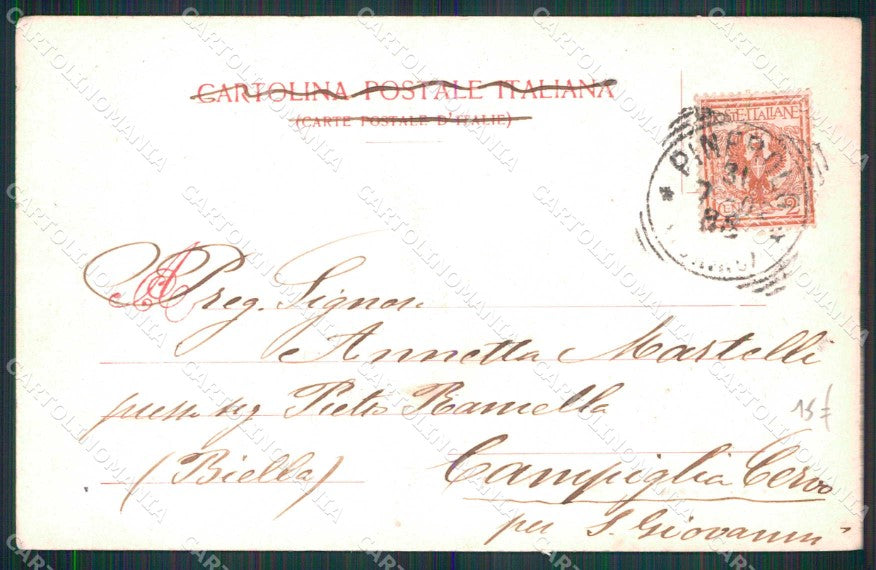 CARTOLINA POSTALE ITALIANA
(CARTE POSTALE D'ITALIE)
POSTE ITALIANE
CENT. 2
PINEROLO
31
7
A Preg. Signora
Annetta Martelli
presso sig Pietro Ramella
15
(Biella) Campiglia Cervo
per S. Giovanni
CARTOLINOMANIA